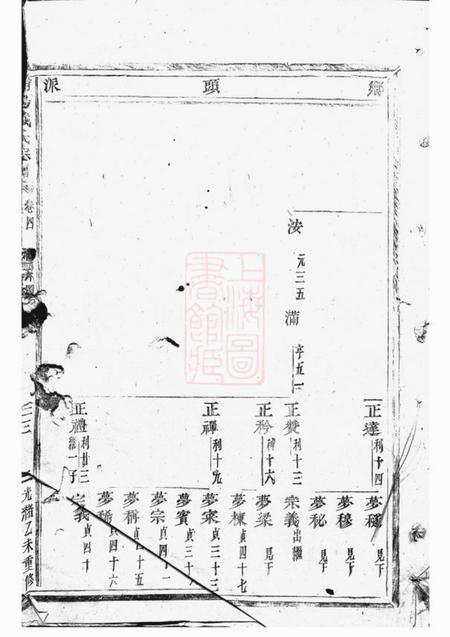 鄉頭派
汝 元三五
滿 亨五一
正達 利十四
夢穆 見下
夢祕 見下
正雙 利十三
宗義 出繼
正衿 利十六
夢梁 見下
夢棟 貞四十七
正禪 利十九
夢寀 貞三十三
夢賓 貞三十
夢宗 貞四十一
夢稱 貞四十五
夢稱 貞四十六
正禮 利廿三 繼一子
宗義 貞四十
卷四
三三
光緒乙未重修
上海圖書館藏